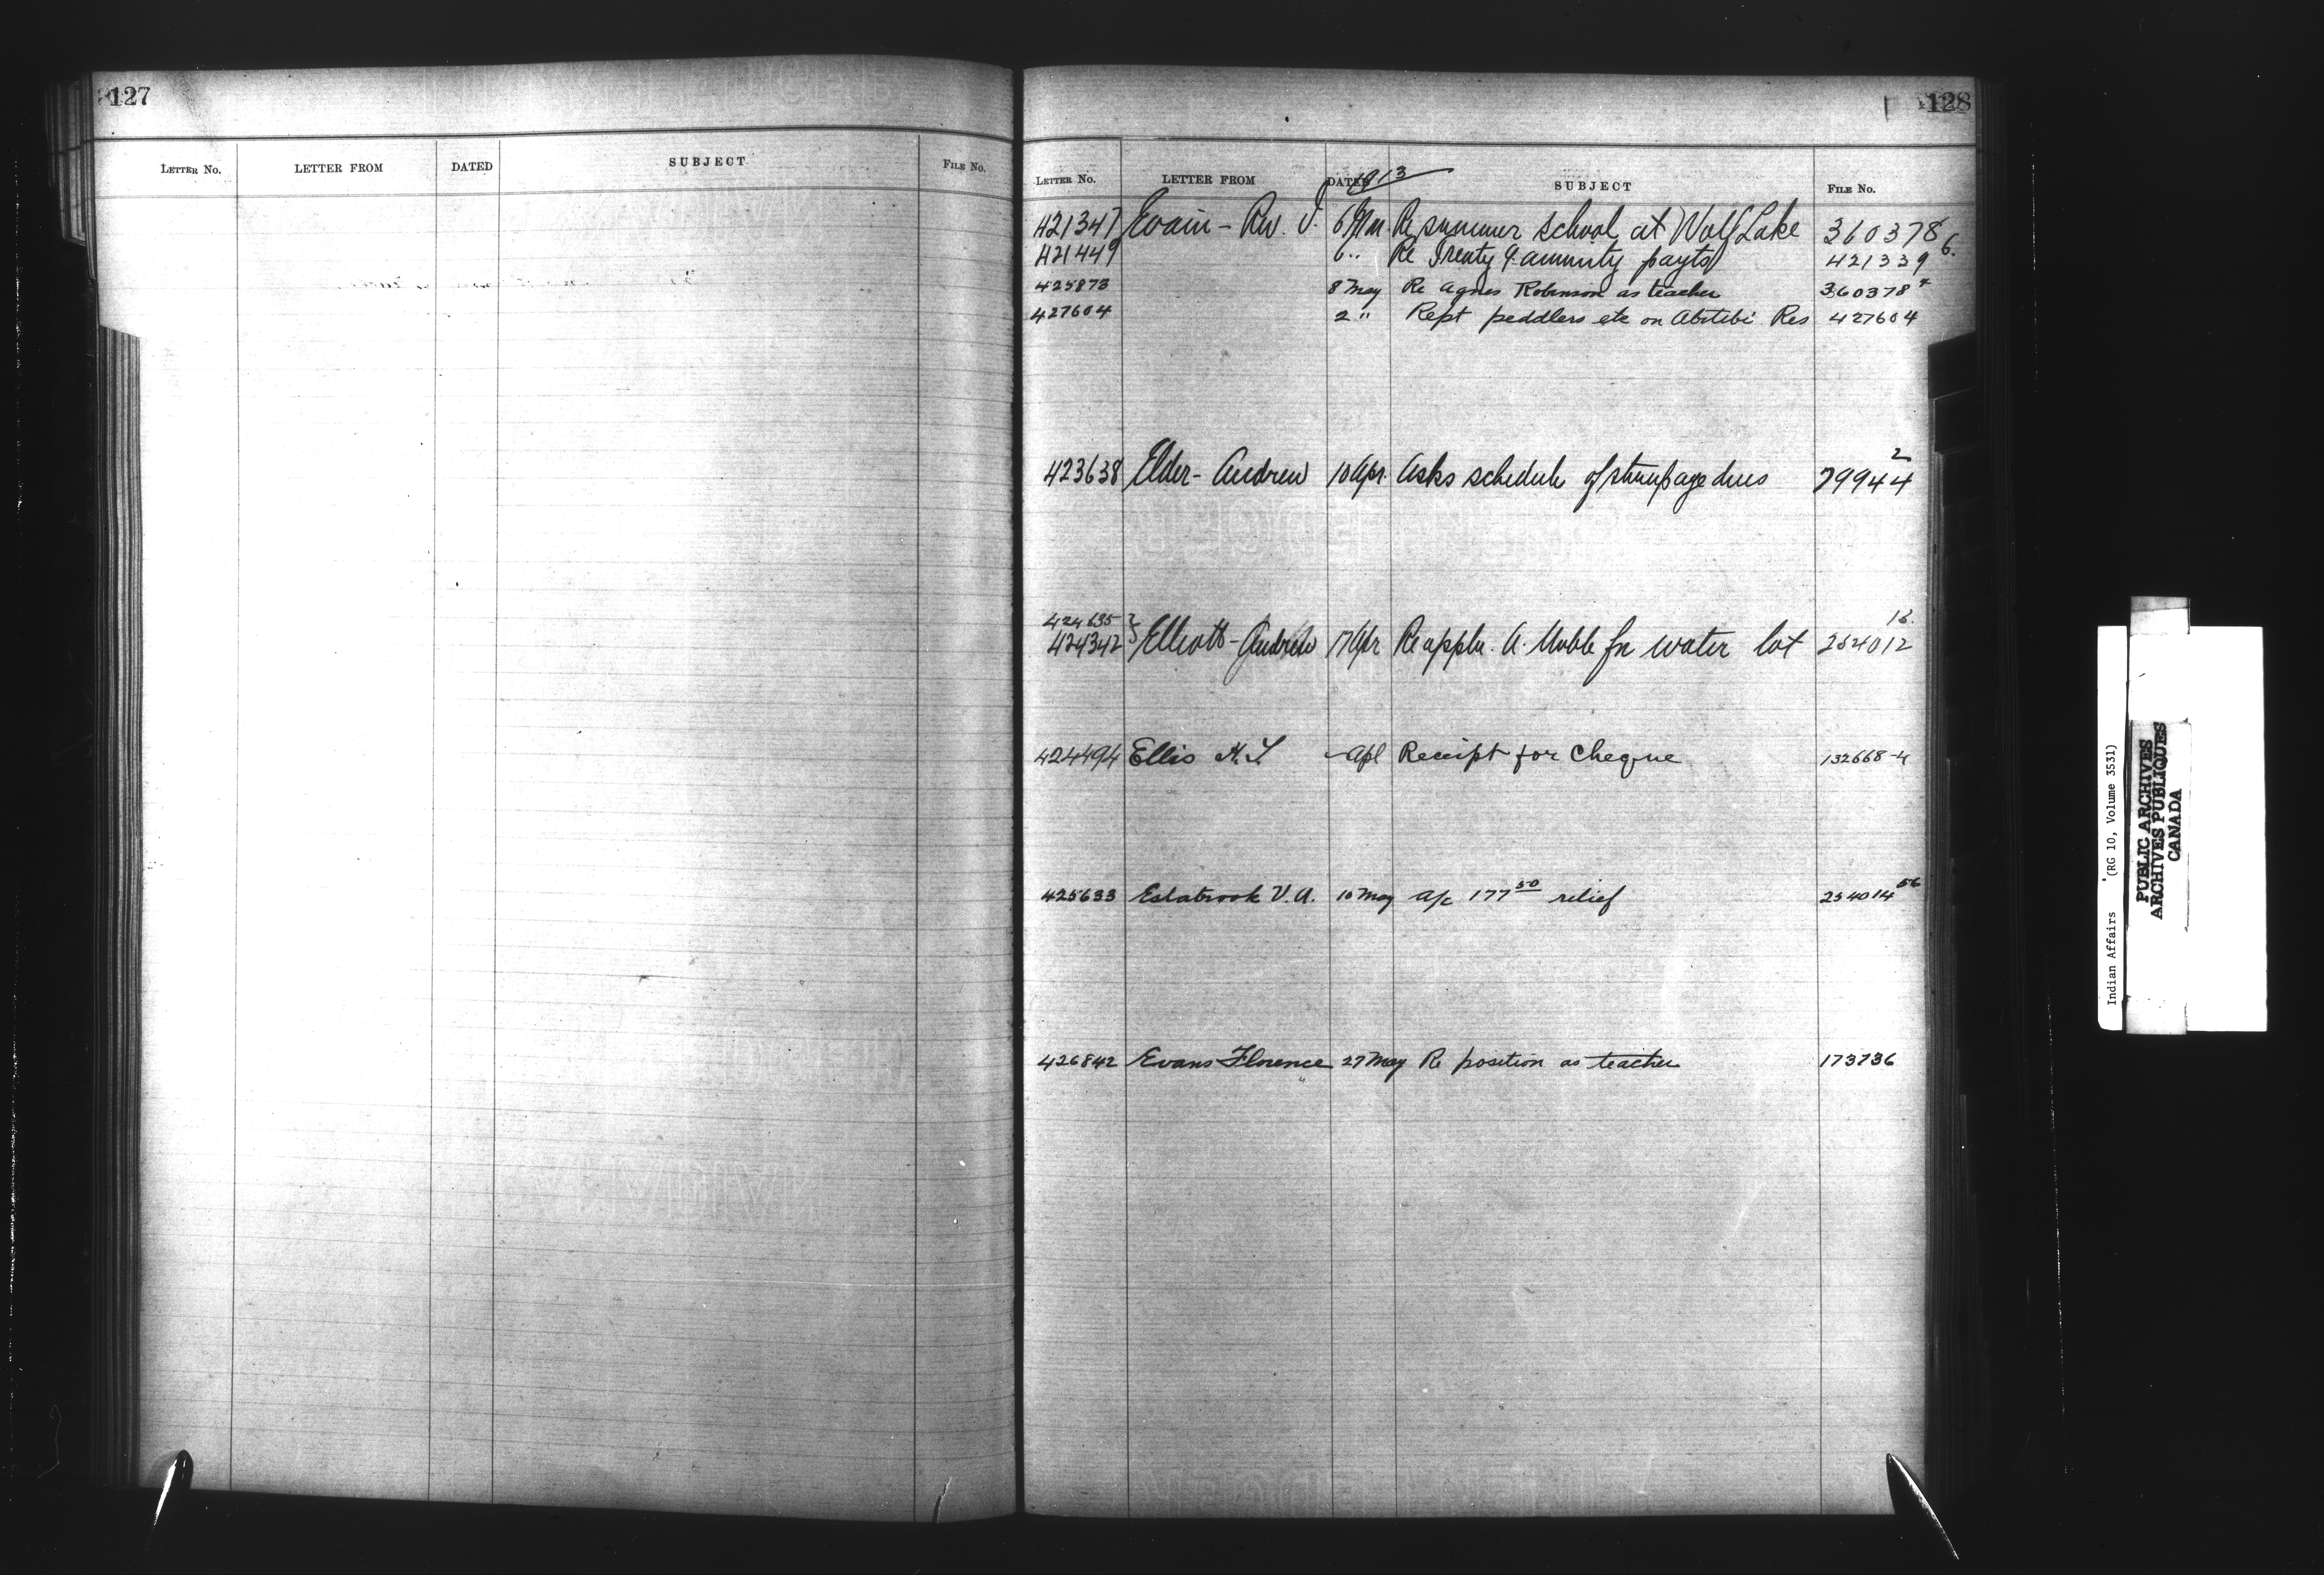 127
LETTER No. LETTER FROM DATED SUBJECT FILE No.
128
1913
LETTER No. LETTER FROM DATED SUBJECT FILE No.
421347 Evain - Rev. J. 6 Mar Re summer school at Wolf Lake 360378 6.
421449 6 " Re Treaty & annuity payts 421339
425873 8 May Re Agnes Robinson as teacher 360378
427604 2 " Rept peddlers etc on Abitibi Res 427604
423638 Elder - Andrew 10 Apr. Asks schedule of stumpage dues 79944 2
424635
424342 } Elliott - Andrew 17 Apr Re appln. A. for water lot 254012 13.
424494 Ellis H. L - Apl Receipt for Cheque 132668-4
425633 Estabrook V. A. 10 May A/c 177 50 relief 254014 56
426842 Evans Florence 27 May Re position as teacher 173736
Indian Affairs (RG 10, Volume 3531)
PUBLIC ARCHIVES
ARCHIVES PUBLIQUES
CANADA